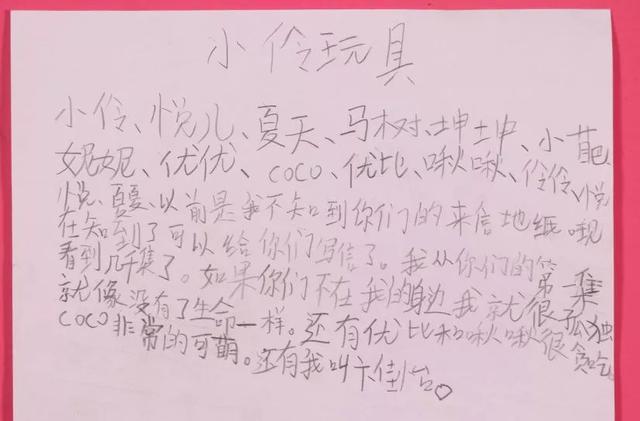 小伶玩具
小伶、悦儿、夏天、马树、坤坤、小葩
妮妮、优优、coco、优比、啾啾、伶伶、悦
悦、夏夏、以前是我不知到你们的来信地纸。现
在知到了可以给你们写信了。我从你们的第一集
看到几千集了。如果你们不在我的身边我就很孤独
就像没有了生命一样。还有优比和啾啾很贪吃。
coco非常的可萌。还有我叫卞佳怡。